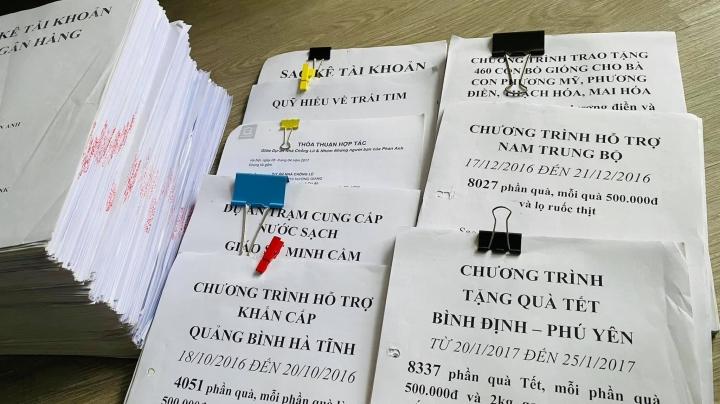 KÊ TÀI KHOẢN
GÂN HÀNG
ANH
NK
SAO KÊ TÀI KHOẢN
QUỸ HIỂU VỀ TRÁI TIM
THỎA THUẬN HỢP TÁC
DỰ ÁN TRẠM CUNG CẤP
NƯỚC SẠCH
GIÁO XỨ MINH CẦM
CHƯƠNG TRÌNH HỖ TRỢ
KHẨN CẤP
QUẢNG BÌNH HÀ TĨNH
18/10/2016 ĐẾN 20/10/2016
4051 phần quà, mỗi phần quà
500.000đ
CHƯƠNG TRÌNH TRAO TẶNG
460 CON BÒ GIỐNG CHO BÀ
CON PHƯƠNG MỸ, PHƯƠNG
ĐIỀN, THẠCH HÓA, MAI HÓA
ương điền và
CHƯƠNG TRÌNH HỖ TRỢ
NAM TRUNG BỘ
17/12/2016 ĐẾN 21/12/2016
8027 phần quà, mỗi quà 500.000đ
và lọ ruốc thịt
CHƯƠNG TRÌNH
TẶNG QUÀ TẾT
BÌNH ĐỊNH – PHÚ YÊN
TỪ 20/1/2017 ĐẾN 25/1/2017
8337 phần quà Tết, mỗi phần quà
500.000đ và 2kg